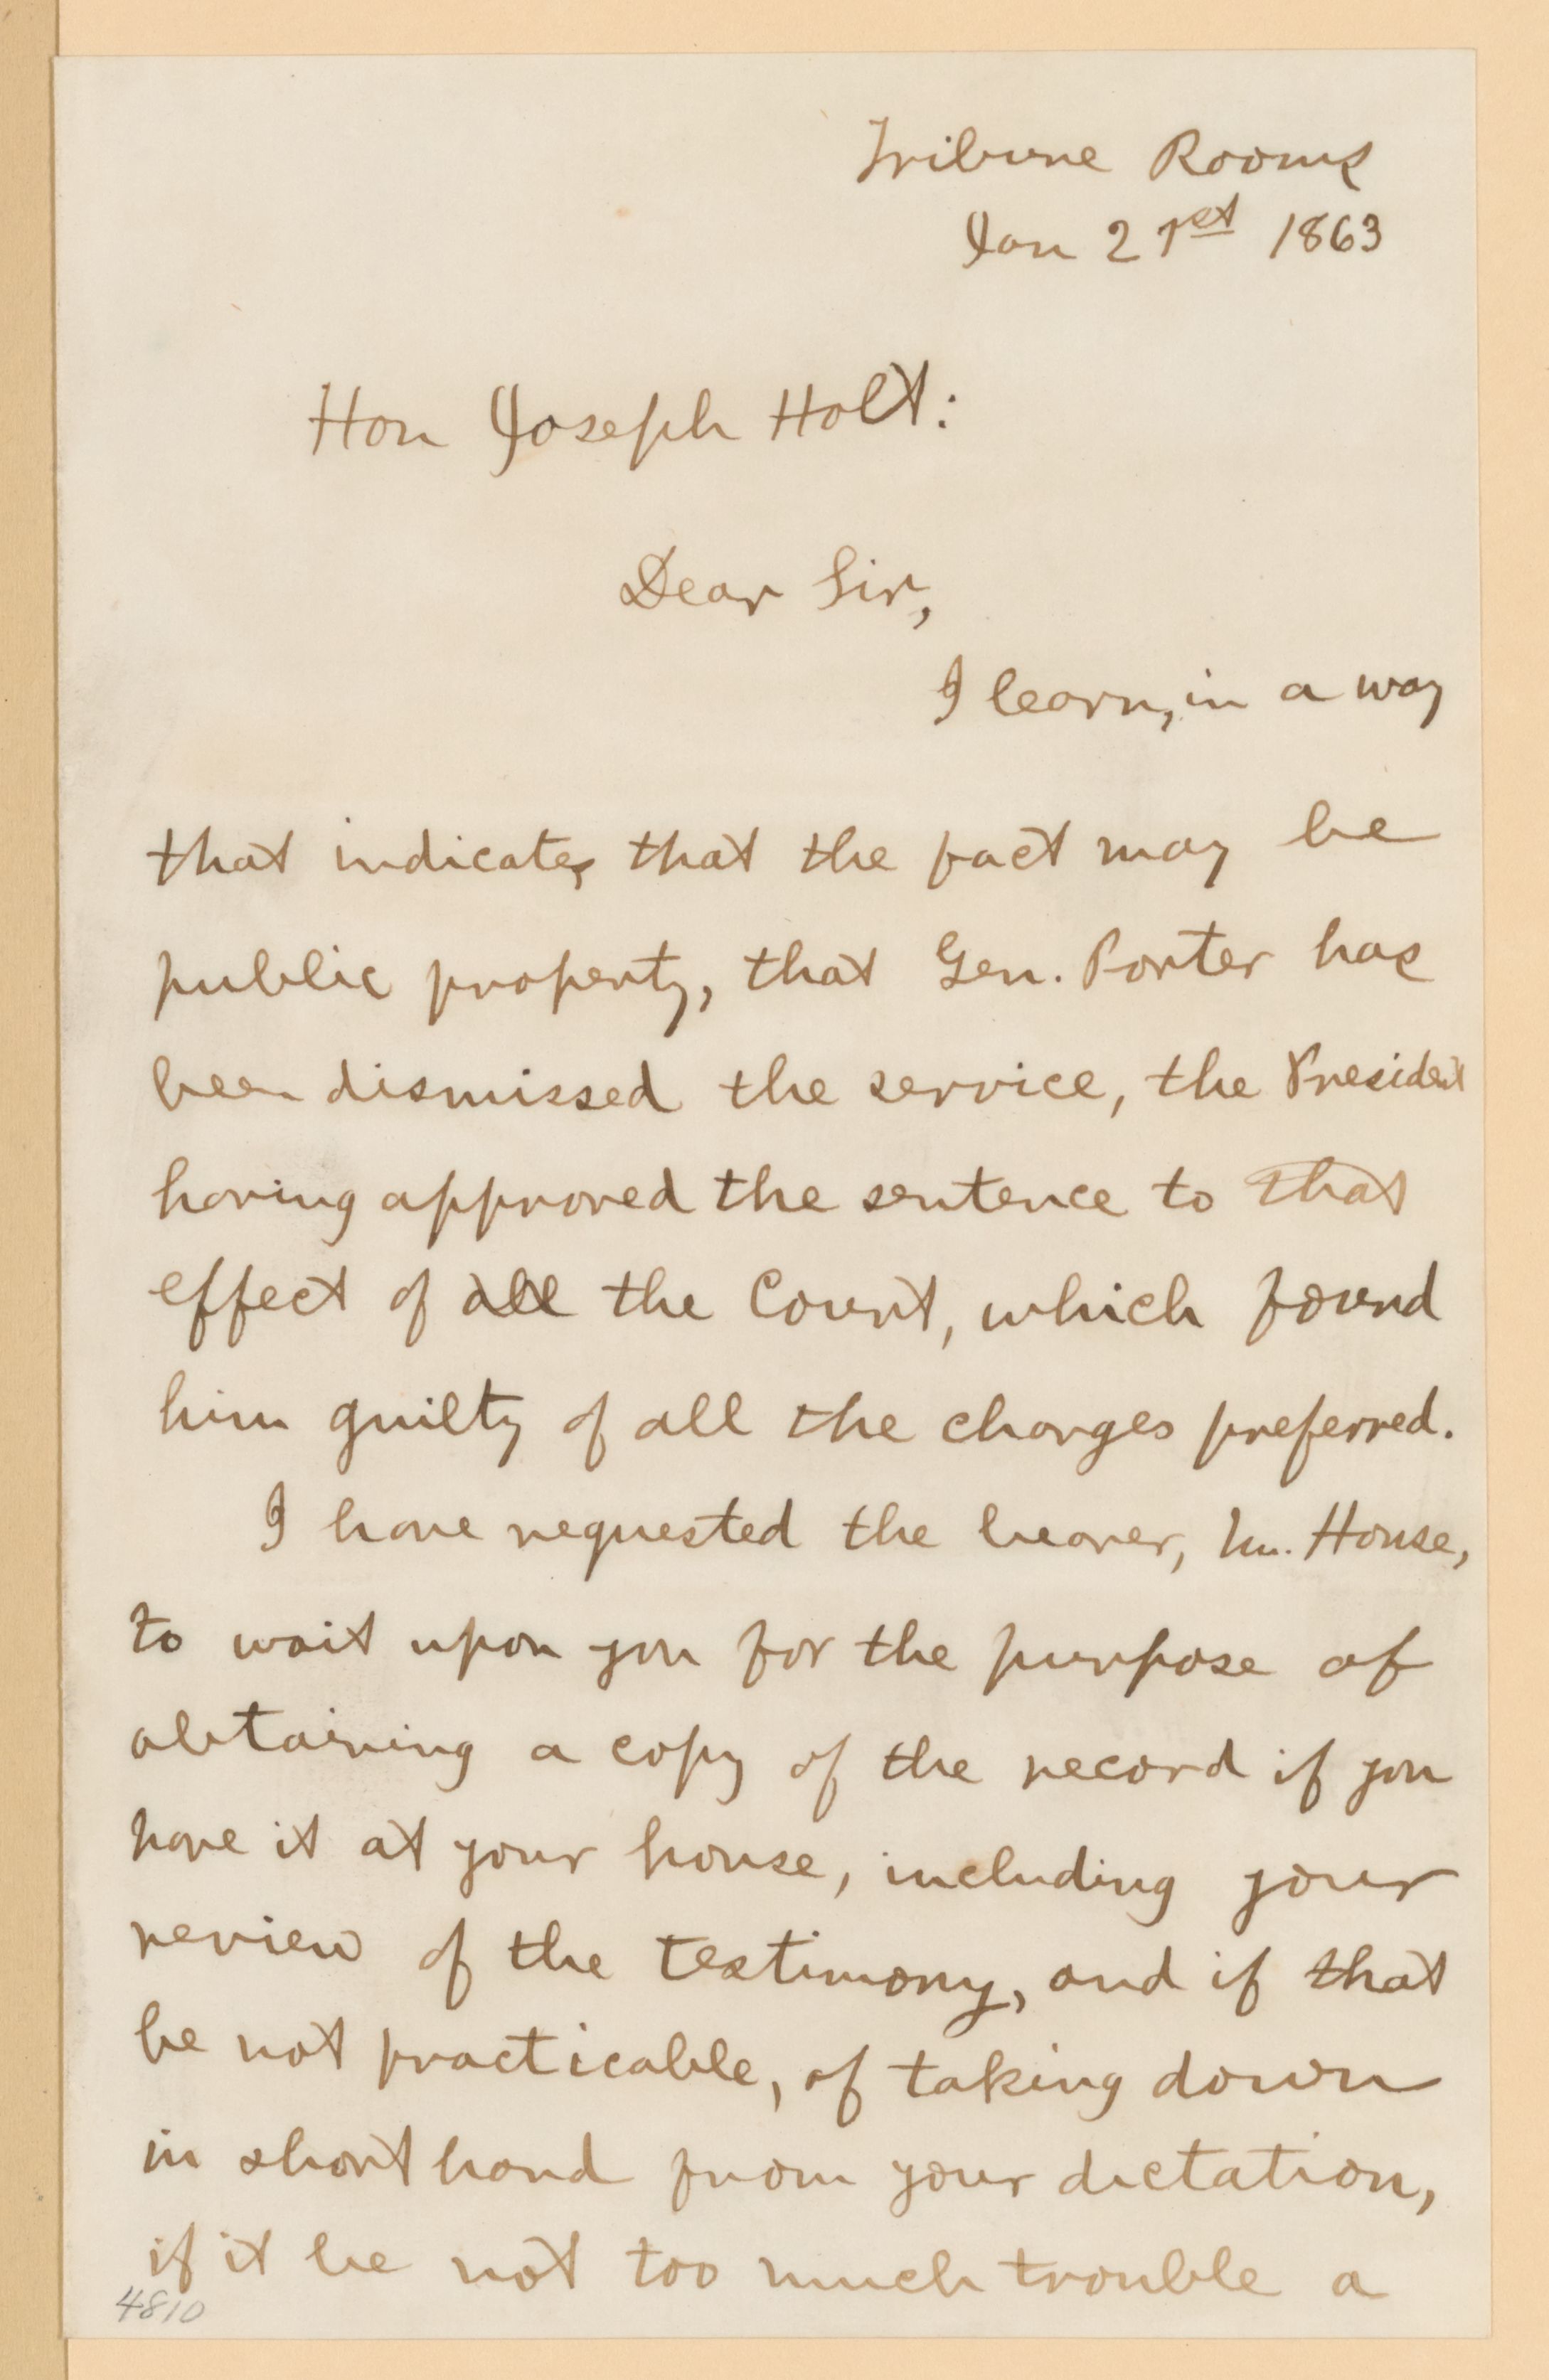 Tribune Rooms
Jan 21st 1863
Hon Joseph Holt:
Dear Sir,
I learn, in a way
that indicates that the fact may be
public property, that Gen. Porter has
been dismissed the service, the President
having approved the sentence to that
effect of all the Court, which found
him guilty of all the charges preferred.
I have requested the bearer, Mr. House,
to wait upon you for the purpose of
obtaining a copy of the record if you
have it at your house, including your
review of the testimony, and if that
be not practicable, of taking down
in short hand from your dictation,
if it be not too much trouble a
4810